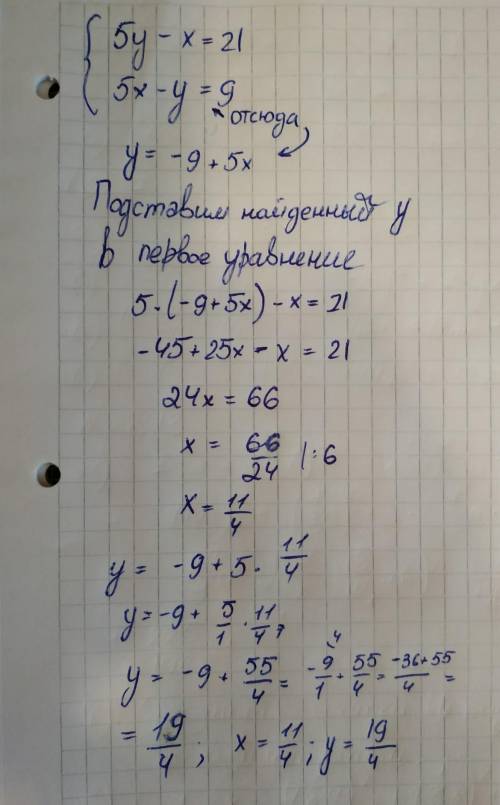 5y - x = 21
5x - y = 9
отсюда
y = -9 + 5x
Подставим найденный y
в первое уравнение
5·(-9+5x) - x = 21
-45+25x - x = 21
24x = 66
x = 66/24 |:6
x = 11/4
y = -9 + 5 · 11/4
y = -9 + 5/1 · 11/4;
y = -9 + 55/4 = -9/1 + 55/4 = -36+55/4 =
= 19/4; x = 11/4; y = 19/4